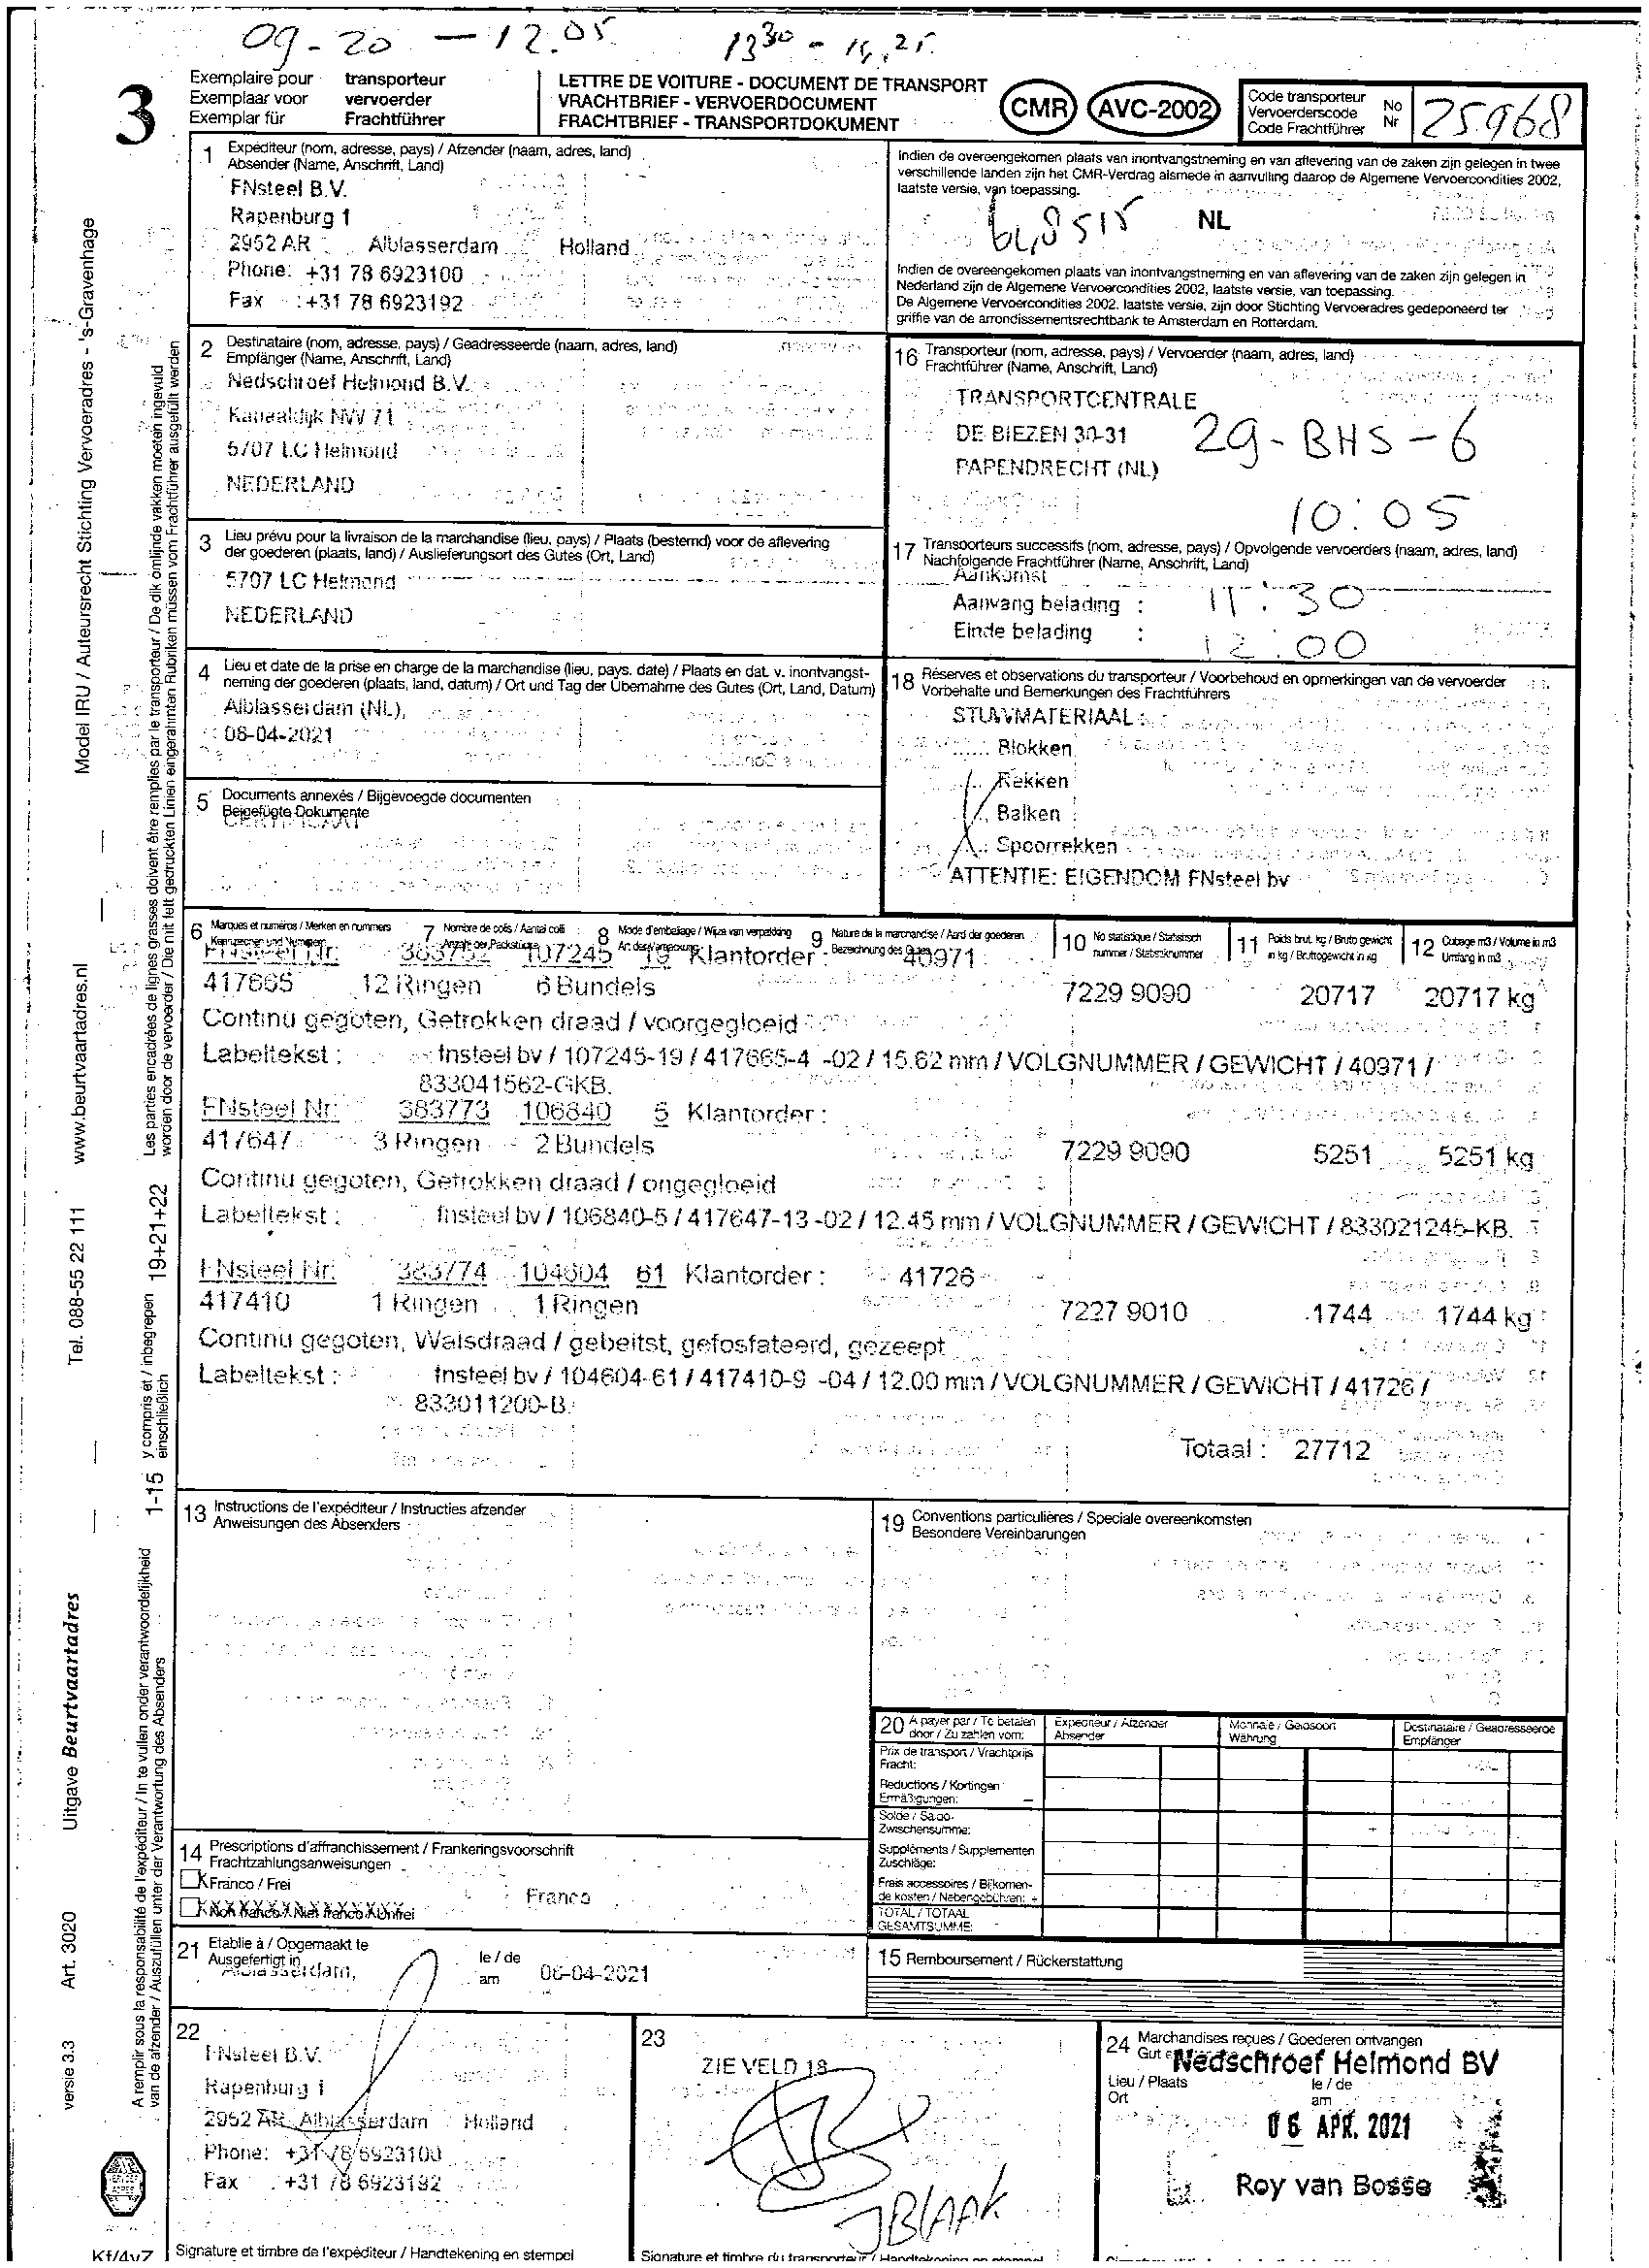 09-20 - 12.05 13 30 - 14,25
3
Exemplaire pour transporteur
Exemplaar voor vervoerder
Exemplar für Frachtführer
LETTRE DE VOITURE - DOCUMENT DE TRANSPORT
VRACHTBRIEF - VERVOERDOCUMENT
FRACHTBRIEF - TRANSPORTDOKUMENT
CMR AVC-2002
Code transporteur
Vervoerderscode
Code Frachtführer
No
Nr
25.968
1 Expéditeur (nom, adresse, pays) / Afzender (naam, adres, land)
Absender (Name, Anschrift, Land)
FNsteel B.V.
Rapenburg 1
2952 AR Alblasserdam Holland
Phone: +31 78 6923100
Fax : +31 78 6923192
Indien de overeengekomen plaats van inontvangstneming en van aflevering van de zaken zijn gelegen in twee
verschillende landen zijn het CMR-Verdrag alsmede in aanvulling daarop de Algemene Vervoercondities 2002,
laatste versie, van toepassing.
NL
Indien de overeengekomen plaats van inontvangstneming en van aflevering van de zaken zijn gelegen in
Nederland zijn de Algemene Vervoercondities 2002, laatste versie, van toepassing.
De Algemene Vervoercondities 2002. laatste versie, zijn door Stichting Vervoeradres gedeponeerd ter
griffie van de arrondissementsrechtbank te Amsterdam en Rotterdam.
2 Destinataire (nom, adresse, pays) / Geadresseerde (naam, adres, land)
Empfänger (Name, Anschrift, Land)
Nedschroef Helmond B.V.
Kanaaldijk NW 71
5707 LC Helmond
NEDERLAND
16 Transporteur (nom, adresse, pays) / Vervoerder (naam, adres, land)
Frachtführer (Name, Anschrift, Land)
TRANSPORTCENTRALE
DE BIEZEN 30-31
PAPENDRECHT (NL)
29-BHS-6
10:05
3 Lieu prévu pour la livraison de la marchandise (lieu, pays) / Plaats (bestemd) voor de aflevering
der goederen (plaats, land) / Auslieferungsort des Gutes (Ort, Land)
5707 LC Helmond
NEDERLAND
17 Transporteurs successifs (nom, adresse, pays) / Opvolgende vervoerders (naam, adres, land)
Nachfolgende Frachtführer (Name, Anschrift, Land)
Aankomst
Aanvang belading : 11:30
Einde belading : 12:00
4 Lieu et date de la prise en charge de la marchandise (lieu, pays. date) / Plaats en dat. v. inontvangst-
neming der goederen (plaats, land, datum) / Ort und Tag der Übernahme des Gutes (Ort, Land, Datum)
Alblasserdam (NL),
06-04-2021
18 Réserves et observations du transporteur / Voorbehoud en opmerkingen van de vervoerder
Vorbehalte und Bemerkungen des Frachtführers
STUWMATERIAAL :
Blokken
Rekken
Balken
Spoorrekken
ATTENTIE: EIGENDOM FNsteel bv
5 Documents annexés / Bijgevoegde documenten
Beigefügte Dokumente
CERTIFICAAT
6 Marques et numéros / Merken en nummers
Kennzeichen und Nummern
7 Nombre de colis / Aantal colli
Anzahl der Packstücke
8 Mode d'emballage / Wijze van verpakking
Art der Verpackung
9 Nature de la marchandise / Aard der goederen
Bezeichnung des Gutes
10 No statistique / Statistisch
nummer / Statistiknummer
11 Poids brut. kg / Bruto gewicht
in kg / Bruttogewicht in kg
12 Cubage m3 / Volume in m3
Umfang in m3
FNsteel Nr. 383752 107245 19 Klantorder : 40971
417665 12 Ringen 6 Bundels 7229 9090 20717 20717 kg
Continu gegoten, Getrokken draad / voorgegloeid
Labeltekst : fnsteel bv / 107245-19 / 417665-4 -02 / 15.62 mm / VOLGNUMMER / GEWICHT / 40971 /
833041562-GKB.
FNsteel Nr. 383773 106840 5 Klantorder :
417647 3 Ringen 2 Bundels 7229 9090 5251 5251 kg
Continu gegoten, Getrokken draad / ongegloeid
Labeltekst : fnsteel bv / 106840-5 / 417647-13 -02 / 12.45 mm / VOLGNUMMER / GEWICHT / 833021245-KB.
FNsteel Nr. 383774 104604 61 Klantorder : 41726
417410 1 Ringen 1 Ringen 7227 9010 1744 1744 kg
Continu gegoten, Walsdraad / gebeitst, gefosfateerd, gezeept
Labeltekst : fnsteel bv / 104604-61 / 417410-9 -04 / 12.00 mm / VOLGNUMMER / GEWICHT / 41726 /
833011200-B.
Totaal : 27712
13 Instructions de l'expéditeur / Instructies afzender
Anweisungen des Absenders
19 Conventions particulières / Speciale overeenkomsten
Besondere Vereinbarungen
20 A payer par / Te betalen
door / Zu zahlen vom:
Expediteur / Afzender
Absender
Monnaie / Geldsoort
Währung
Destinataire / Geadresseerde
Empfänger
Prix de transport / Vrachtprijs
Fracht:
Reductions / Kortingen
Ermäßigungen: -
Solde / Saldo
Zwischensumme:
Suppléments / Supplementen
Zuschläge:
Frais accessoires / Bijkomen-
de kosten / Nebengebühren: +
TOTAL / TOTAAL
GESAMTSUMME:
14 Prescriptions d'affranchissement / Frankeringsvoorschrift
Frachtzahlungsanweisungen
X Franco / Frei
Non franco / Niet franco / Unfrei
Franco
21 Etablie à / Opgemaakt te
Ausgefertigt in
Alblasserdam,
le / de
am
06-04-2021
15 Remboursement / Rückerstattung
22
FNsteel B.V.
Rapenburg 1
2952 AR Alblasserdam Holland
Phone: +31 78 6923100
Fax : +31 78 6923192
Signature et timbre de l'expéditeur / Handtekening en stempel
23
ZIE VELD 18
JBLAAK
Signature et timbre du transporteur / Handtekening en stempel
24 Marchandises reçues / Goederen ontvangen
Nedschroef Helmond BV
Lieu / Plaats
Ort
le / de
am
06 APR. 2021
Roy van Bosse
Model IRU / Auteursrecht Stichting Vervoeradres - 's-Gravenhage
www.beurtvaartadres.nl
Tel. 088-55 22 111
Uitgave Beurtvaartadres
Art. 3020
versie 3.3
Les parties encadrées de lignes grasses doivent être remplies par le transporteur / De dik omlijnde vakken moeten ingevuld
worden door de vervoerder / Die mit fett gedruckten Linien eingerahmten Rubriken müssen vom Frachtführer ausgefüllt werden
19+21+22
y compris et / inbegrepen
einschließlich
1-15
A remplir sous la responsabilité de l'expéditeur / In te vullen onder verantwoordelijkheid
van de afzender / Auszufüllen unter der Verantwortung des Absenders